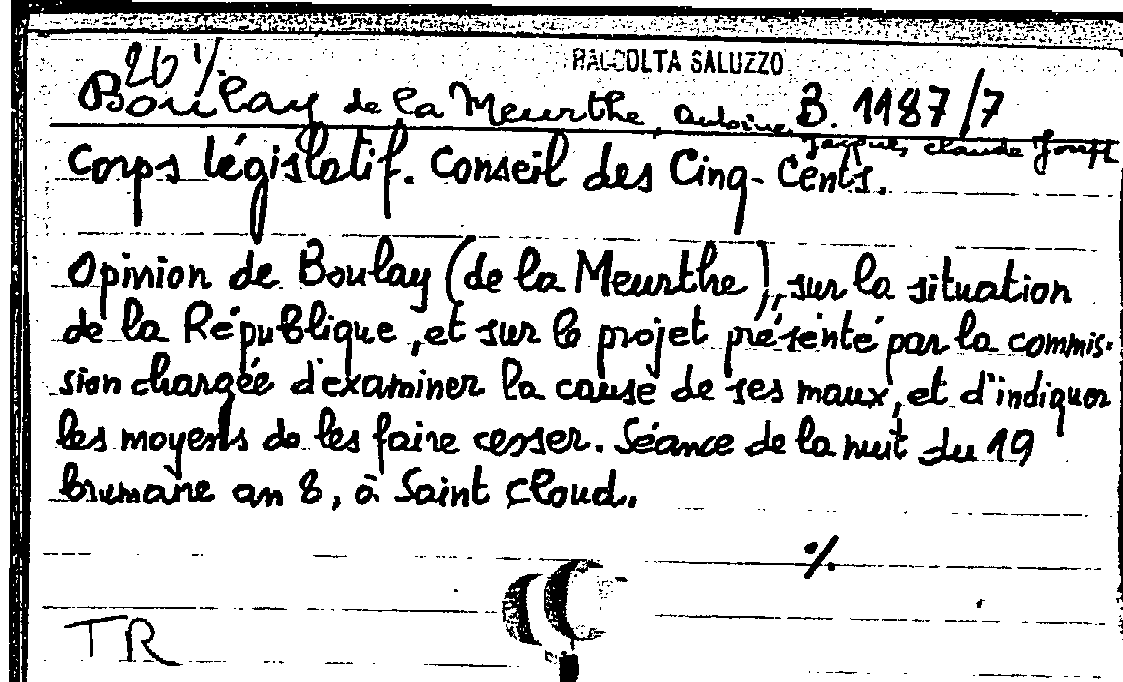 26 1/.
RACCOLTA SALUZZO
Boulay de la Meurthe, Antoine B. 1187/7
Jacques Claude Joseph
Corps législatif. Conseil des Cinq-Cents.
Opinion de Boulay (de la Meurthe), sur la situation
de la République, et sur le projet présenté par la commis-
sion chargée d'examiner la cause de ses maux, et d'indiquer
les moyens de les faire cesser. Séance de la nuit du 19
brumaire an 8, à Saint Cloud.
%
TR